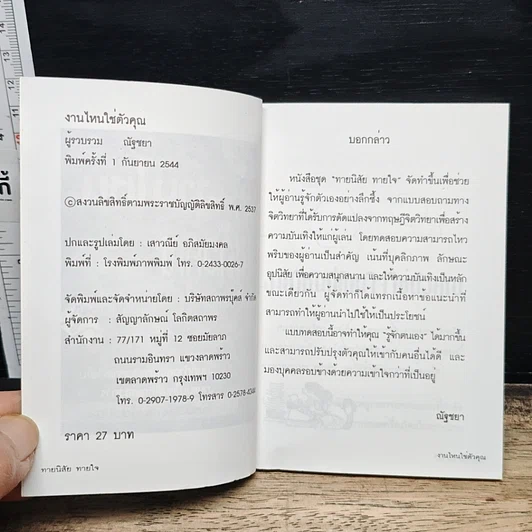 งานไหนใช่ตัวคุณ
ผู้รวบรวม ณัฐชยา
พิมพ์ครั้งที่ 1 กันยายน 2544
©สงวนลิขสิทธิ์ตามพระราชบัญญัติลิขสิทธิ์ พ.ศ. 2537
ปกและรูปเล่มโดย : เสาวณีย์ อภิสมัยมงคล
พิมพ์ที่ : โรงพิมพ์ภาพพิมพ์ โทร. 0-2433-0026-7
จัดพิมพ์และจัดจำหน่ายโดย : บริษัทสถาพรบุ๊คส์ จำกัด
ผู้จัดการ : สัญญาลักษณ์ โลกิตสถาพร
สำนักงาน : 77/171 หมู่ที่ 12 ซอยมัยลาภ
ถนนรามอินทรา แขวงลาดพร้าว
เขตลาดพร้าว กรุงเทพฯ 10230
โทร. 0-2907-1978-9 โทรสาร
ราคา 27 บาท
ทายนิสัย ทายใจ
บอกกล่าว
หนังสือชุด "ทายนิสัย ทายใจ" จัดทำขึ้นเพื่อช่วย
ให้ผู้อ่านรู้จักตัวเองอย่างลึกซึ้ง จากแบบสอบถามทาง
จิตวิทยาที่ได้รับการดัดแปลงจากทฤษฎีจิตวิทยาเพื่อสร้าง
ความบันเทิงให้แก่ผู้เล่น โดยทดสอบความสามารถไหว
พริบของผู้อ่านเป็นสำคัญ เน้นที่บุคลิกภาพ ลักษณะ
อุปนิสัย เพื่อความสนุกสนาน และให้ความบันเทิงเป็นหลัก
ขณะเดียวกัน ผู้จัดทำก็ได้แทรกเนื้อหาข้อแนะนำที่
สามารถทำให้ผู้อ่านนำไปใช้ให้เป็นประโยชน์
แบบทดสอบนี้อาจทำให้คุณ "รู้จักตนเอง" ได้มากขึ้น
และสามารถปรับปรุงตัวคุณให้เข้ากับคนอื่นได้ดี และ
มองบุคคลรอบข้างด้วยความเข้าใจกว่าที่เป็นอยู่
ณัฐชยา
งานไหนใช่ตัวคุณ